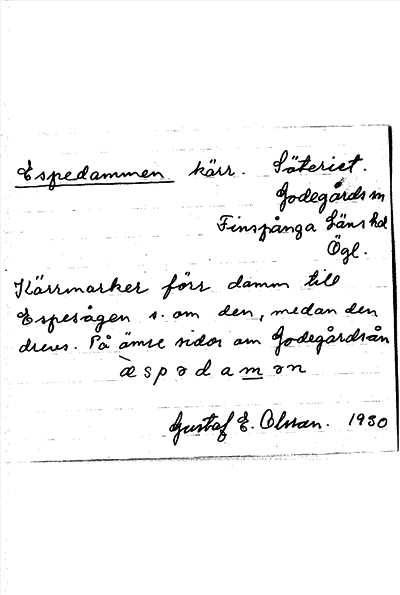 Espedammen kärr. Säteriet.
Godegårds sn
Finspånga läns hd
Ögl.
Kärrmarker förr damm till
Espesågen s. om den, medan den
drevs. På ömse sidor om Godegårdsån
æ̀spədamən
Gustaf E. Olsson. 1930